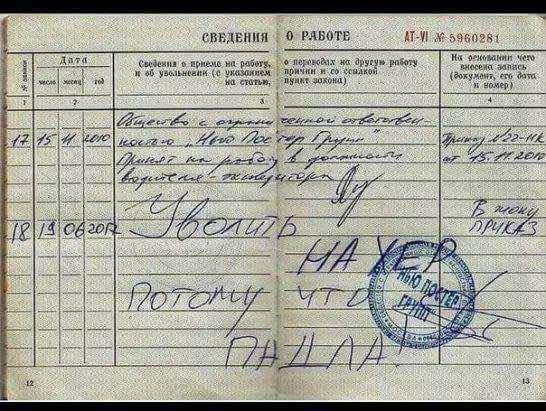 СВЕДЕНИЯ О РАБОТЕ АТ-VI № 5960281
№ записи
Дата
число месяц год
Сведения о приеме на работу, о переводах на другую работу
и об увольнении (с указанием причин и со ссылкой
на статью, пункт закона)
На основании чего
внесена запись
(документ, его дата
и номер)
1 2 3 4
Общество с ограниченной ответствен-
ностью "Нью Постер Групп"
17 15 11 2010 Принят на работу в должности
водителя-экспедитора
Приказ №22-НК
от 15.11.2010
18 19 06 2017 Уволить
В жопу
ПРИКАЗ
НАХЕР
ПОТОМУ ЧТО
ПАЦЛА!
НЬЮ ПОСТЕР
ГРУПП
12 13